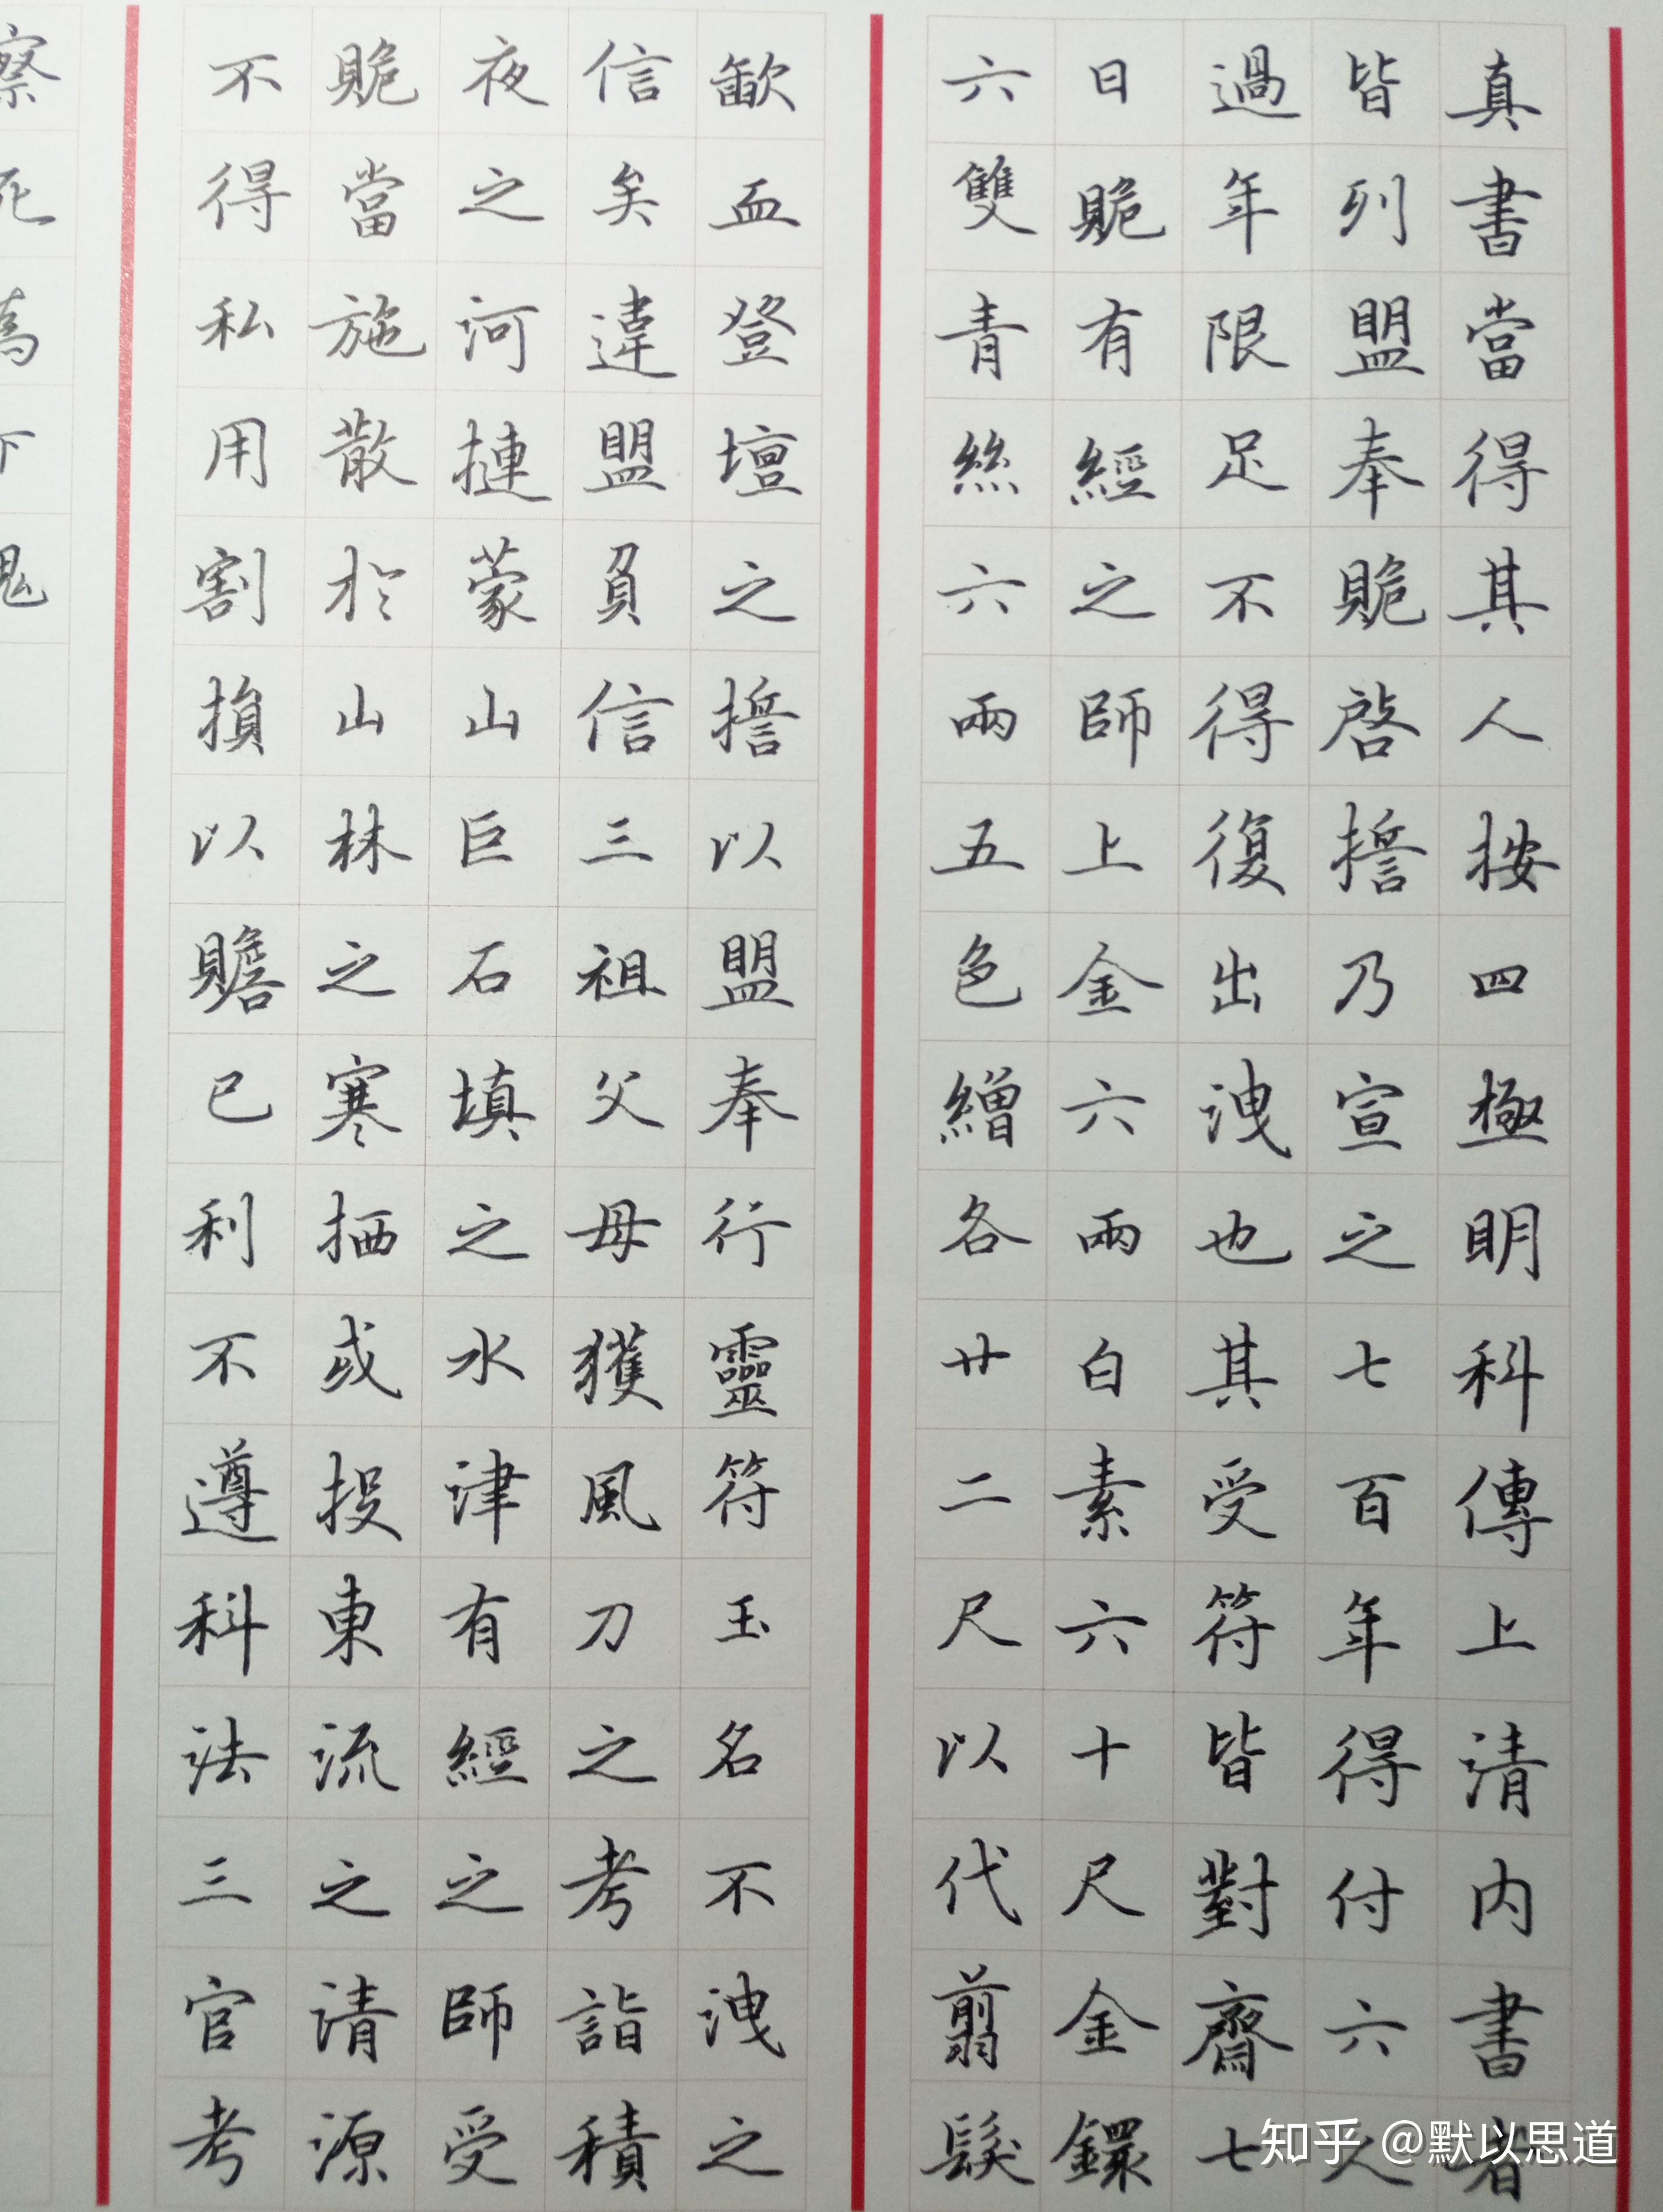 真書當得其人按四極明科傳上清内書者
皆列盟奉賭啓擔乃宣之七百年得付六人
過年限足不得復出洩也其受符皆對齋七
日賭有經之師上金六兩白素六十尺金鐶
六雙青絲六兩五色繒各廿二尺以代翦髮
歃血登壇之擔以盟奉行靈符玉名不洩之
信矣違盟負信三祖父母獲風刀之考詣積
夜之河摙蒙山巨石填之水津有經之師受
賭當施散於山林之寒栖或投東流之清源
不得私用割損以贍己利不遵科法三官考
察死為下鬼
知乎 @默以思道